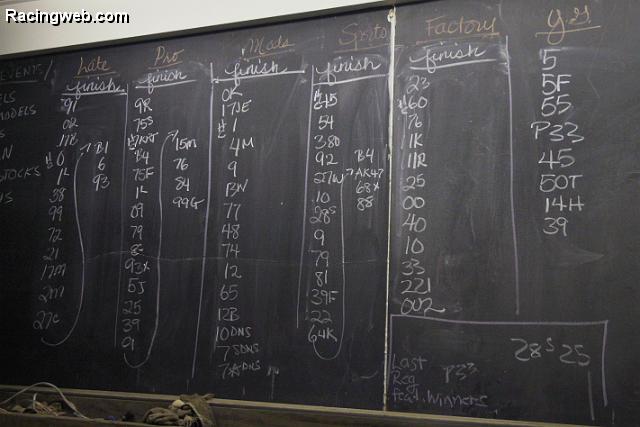 Racingweb.com
EVENTS
Late
finish
91
0R
11B
0
1L
38
99
72
21
17M
2M
27C
B1
6
93
Pro
finish
9R
75S
B4
75F
1L
09
79
93x
5J
25
39
91
15M
76
84
99G
Mods
finish
OK
17JE
1
4M
9
BW
77
48
74
12
65
12B
10 DNS
7S DNS
DNS
finish
54
380
92
27W
10
28S
9
79
81
39F
22
64K
B4
AK47
68x
88
Factory
finish
23
60
76
1K
11R
25
00
40
10
33
221
002
Y.S
5
5F
55
P33
45
50T
14H
39
28S 25
Last
Reg P33
feat. winners